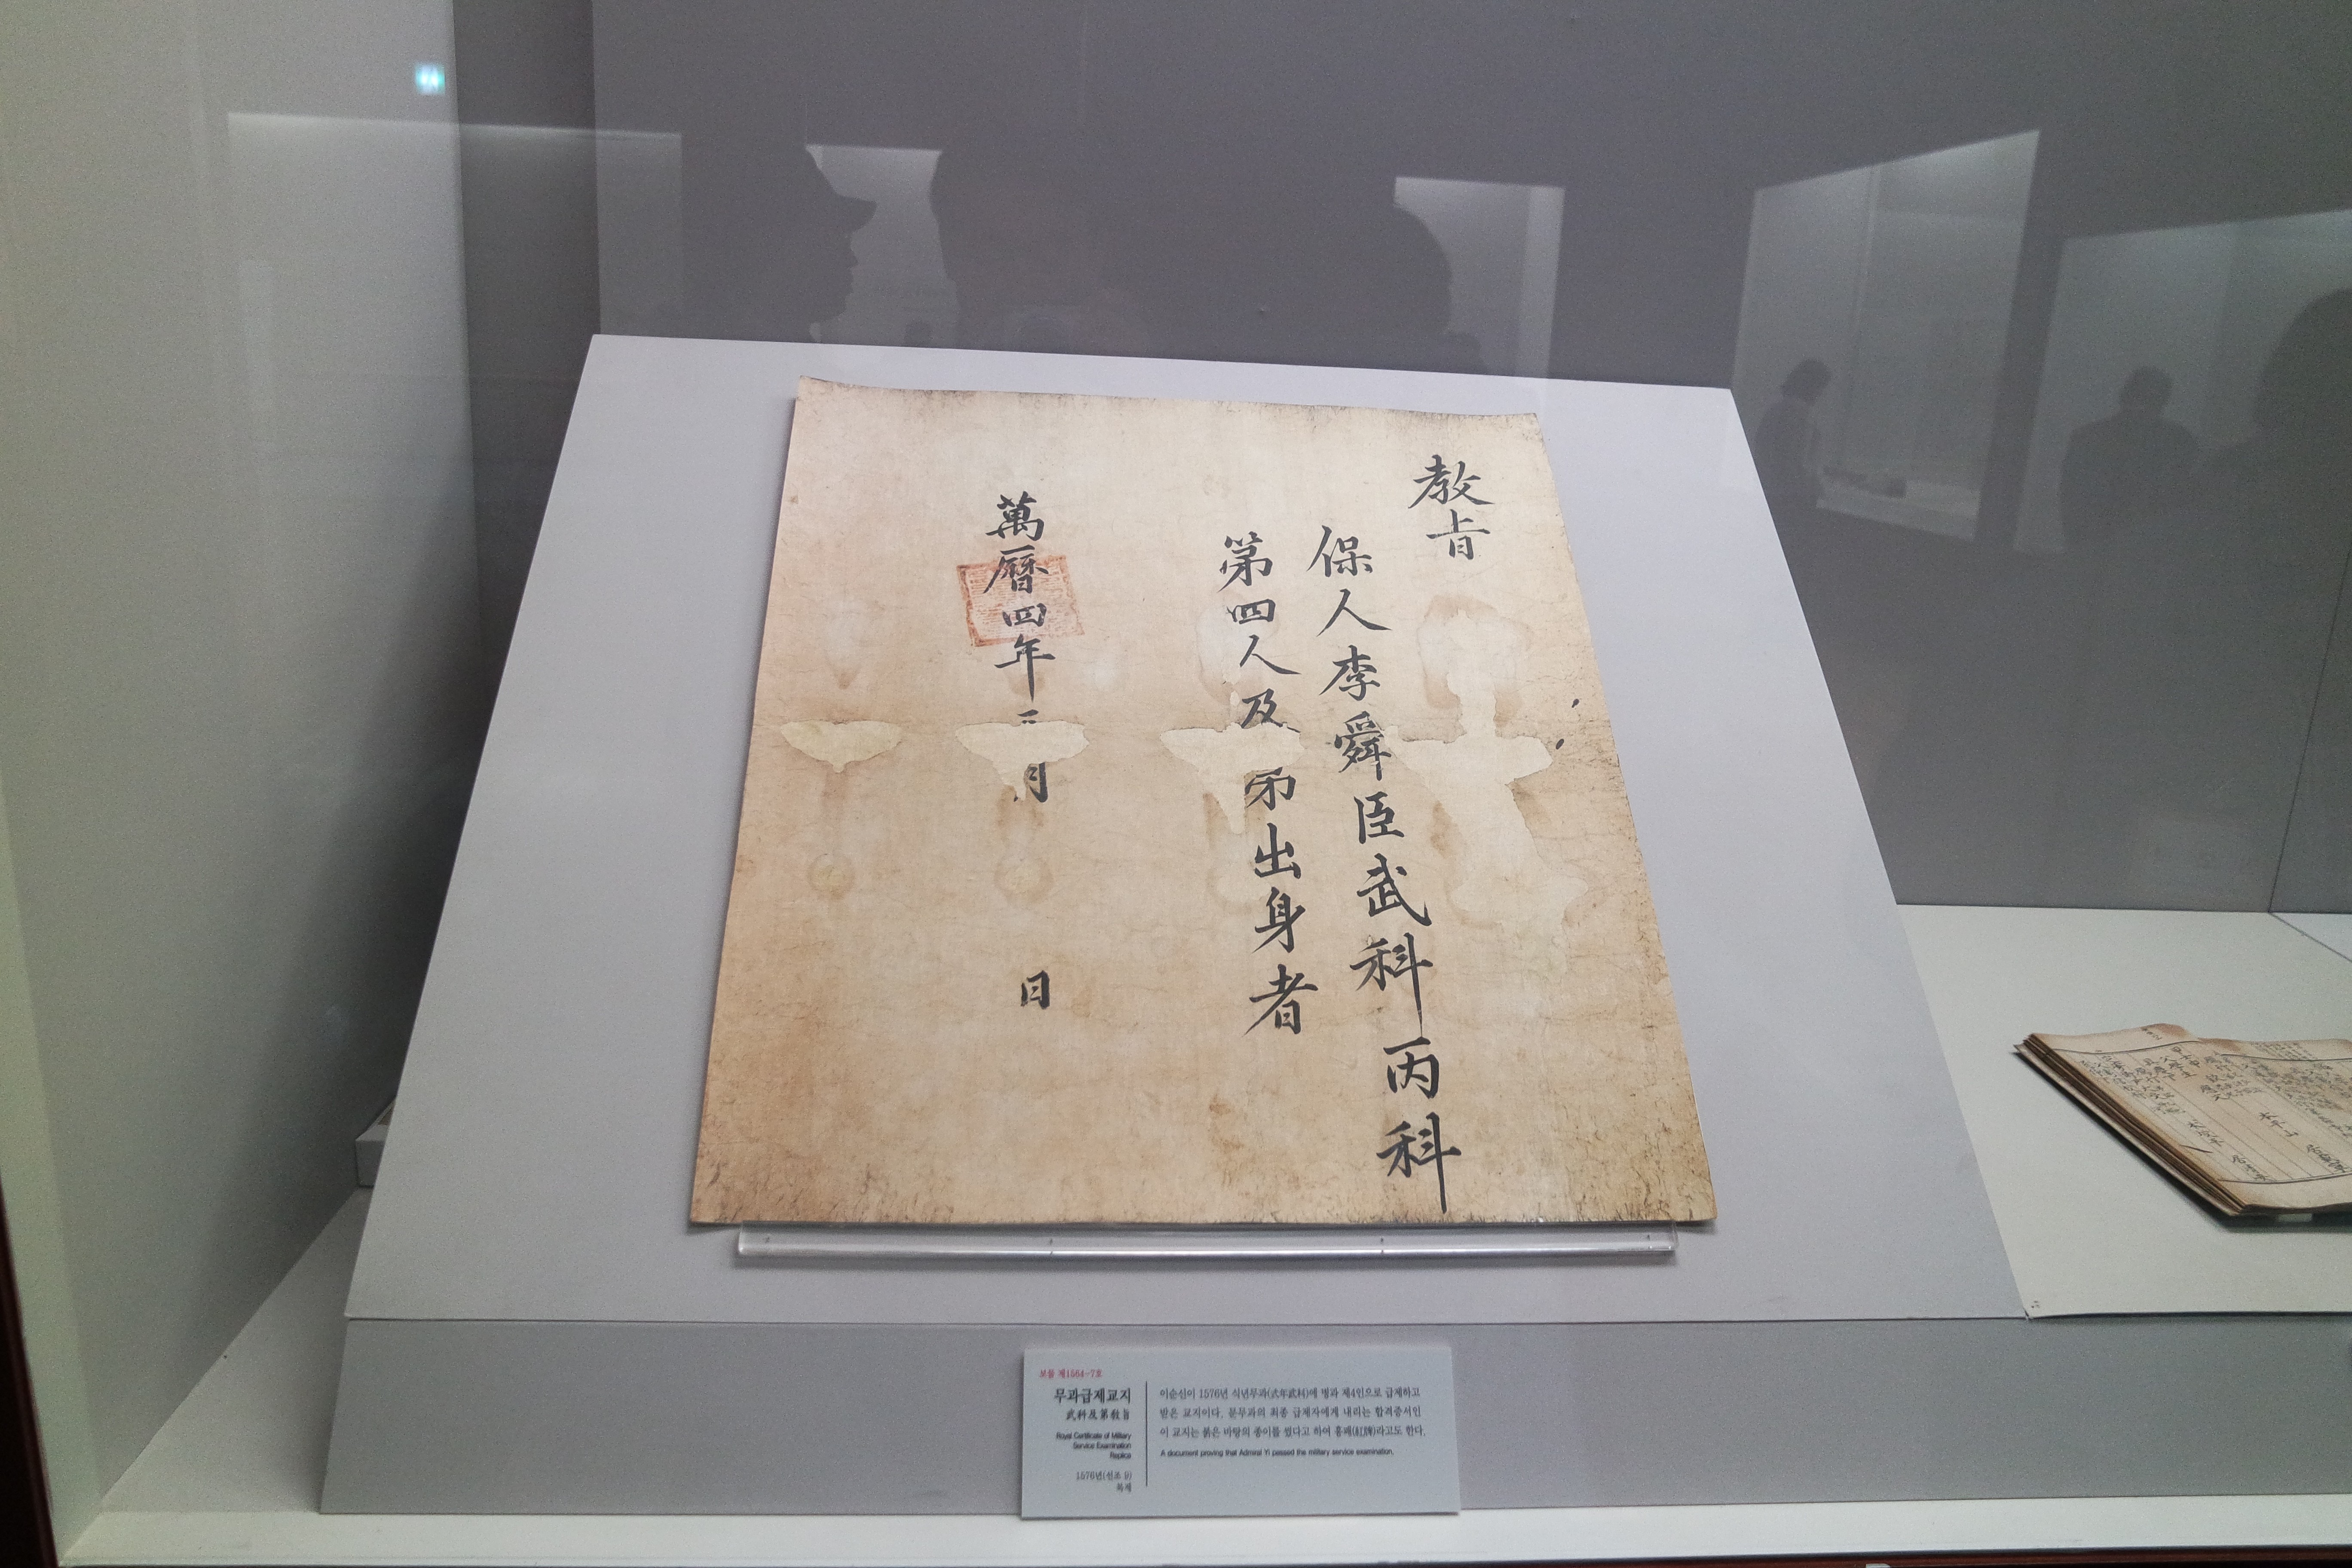 教旨
保人李舜臣武科丙科
第四人及第出身者
萬曆四年三月 日
보물 제1564-7호
무과급제교지
武科及第敎旨
Royal Certificate of Military
Service Examination
Replica
1576년(선조 9)
복제
이순신이 1576년 식년무과(式年武科)에 병과 제4인으로 급제하고
받은 교지이다. 문무과의 최종 급제자에게 내리는 합격증서인
이 교지는 붉은 바탕의 종이를 썼다고 하여 홍패(紅牌)라고도 한다.
A document proving that Admiral Yi passed the military service examination.